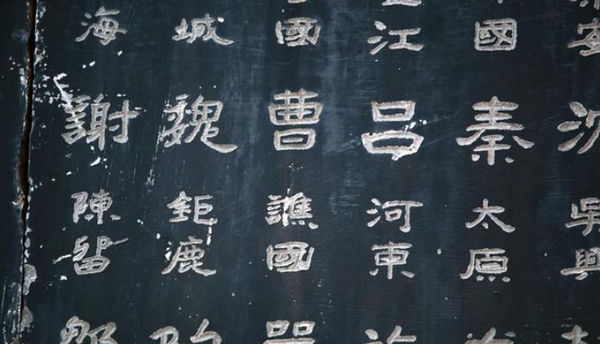 安沈吳興
國秦太原
江呂河東
國曹譙國
城魏鉅鹿
海謝陳留